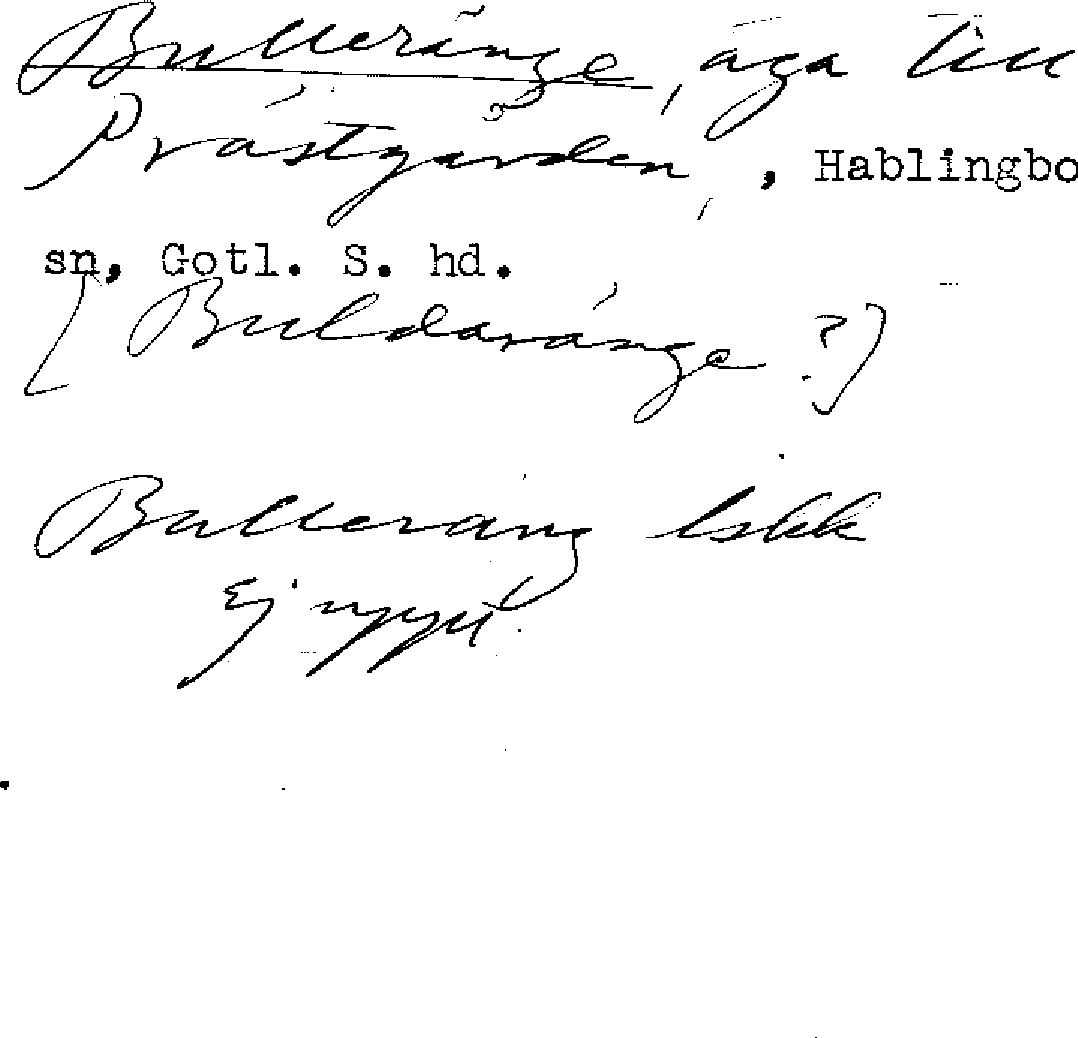 Bulleränge, äga till
Prästgården, Hablingbo
sn, Gotl. S. hd.
[Buldaränge ?]
Bulleräng lskk
Ej uppt.